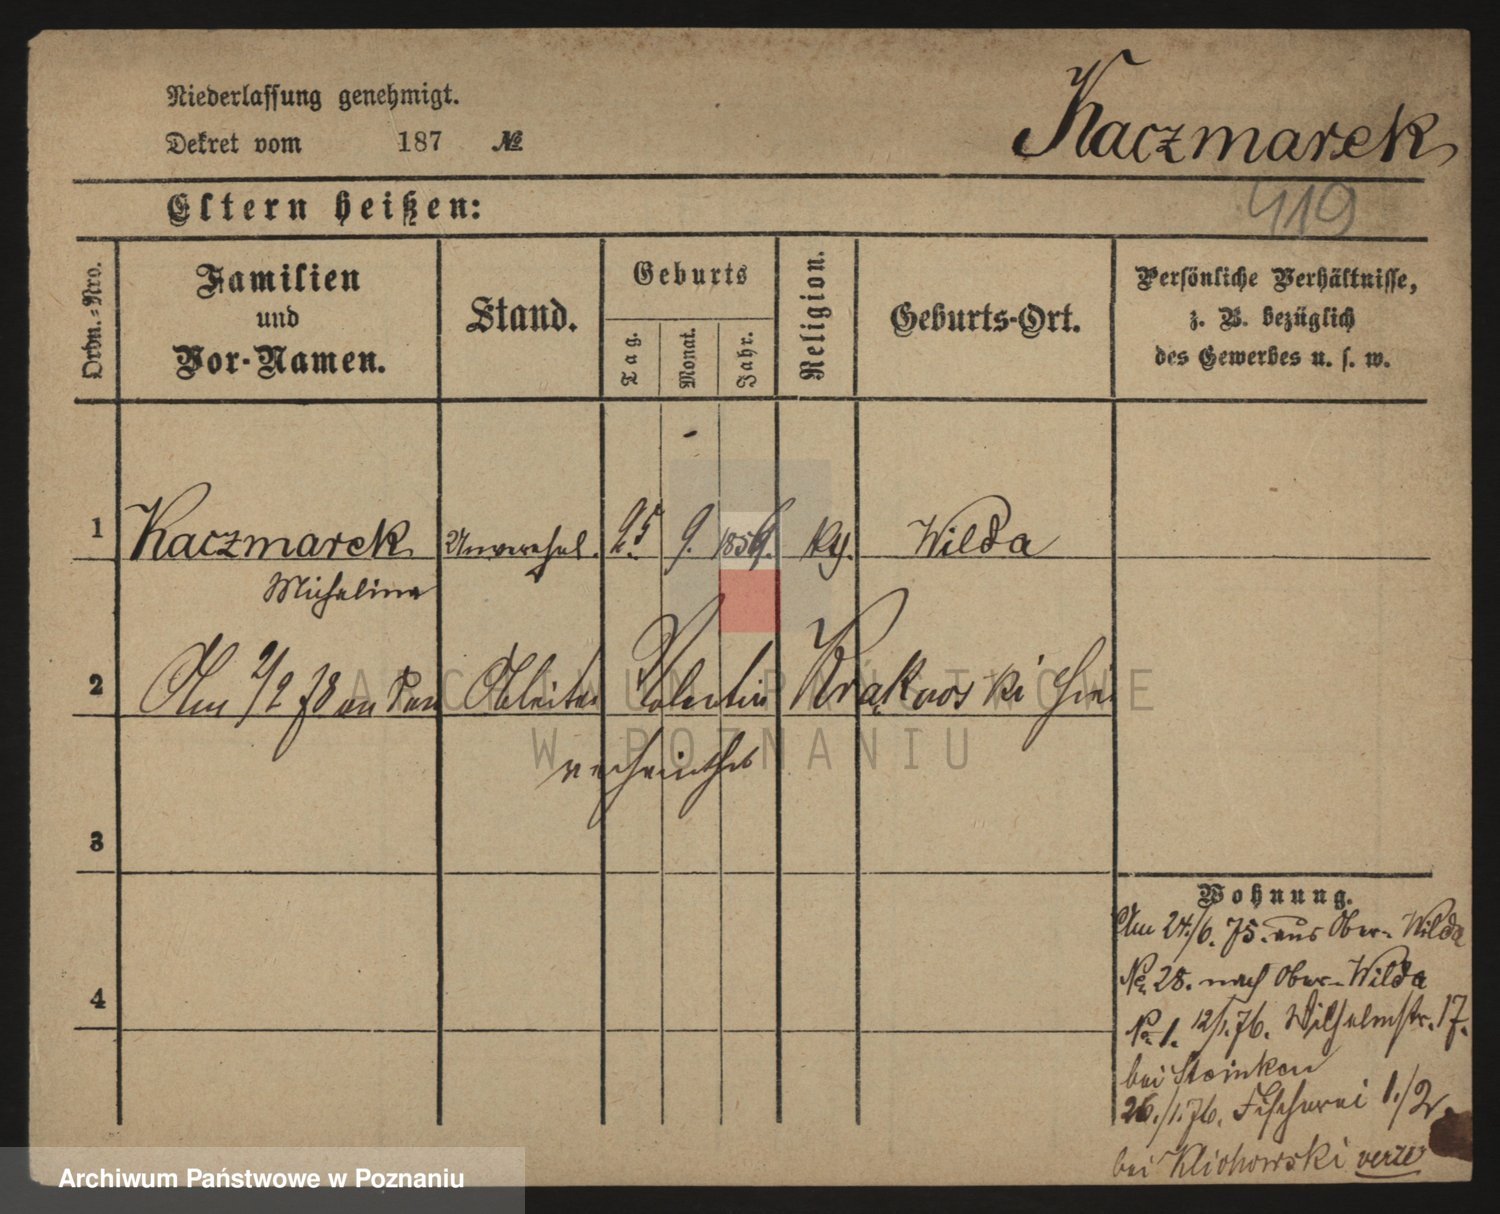 Niederlassung genehmigt.
Dekret vom 187 №
Kaczmarek
419
Eltern heißen:
Ordn.-Nro.
Familien
und
Vor-Namen.
Stand.
Geburts
Tag.
Monat.
Jahr.
Religion.
Geburts-Ort.
Persönliche Verhältnisse,
z. B. bezüglich
des Gewerbes u. s. w.
1 Kaczmarek Unverehel. 25. 9. Wilda
Michalina
2 Am 2/2 78 an den Arbeiter Valentin Krąkowski hier
verheirathet
3
4
Wohnung.
Am 24./6. 75. aus Ober-Wilda
No 28. nach Ober-Wilda
No 1. 12/1. 76. Wilhelmstr. 17.
bei Steinkan
26./1. 76. Fischerei 1./2.
bei Klichowski verte
ARCHIWUM PAŃSTWOWE
W POZNANIU
Archiwum Państwowe w Poznaniu